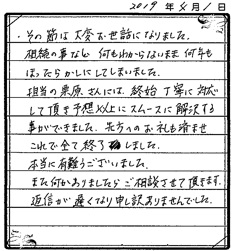 2019年 8月1日
・その節は大変お世話になりました。
相続の事など何もわからないまま何年も
ほったらかしにしてしまいました。
担当の栗原さんには、終始丁寧に対応
して頂き予想以上にスムースに解決する
事ができました。先方へのお礼も済ませ
これで全て終了しました。
本当に有難うございました。
また何かありましたらご相談させて頂きます。
返信が遅くなり申し訳ありませんでした。